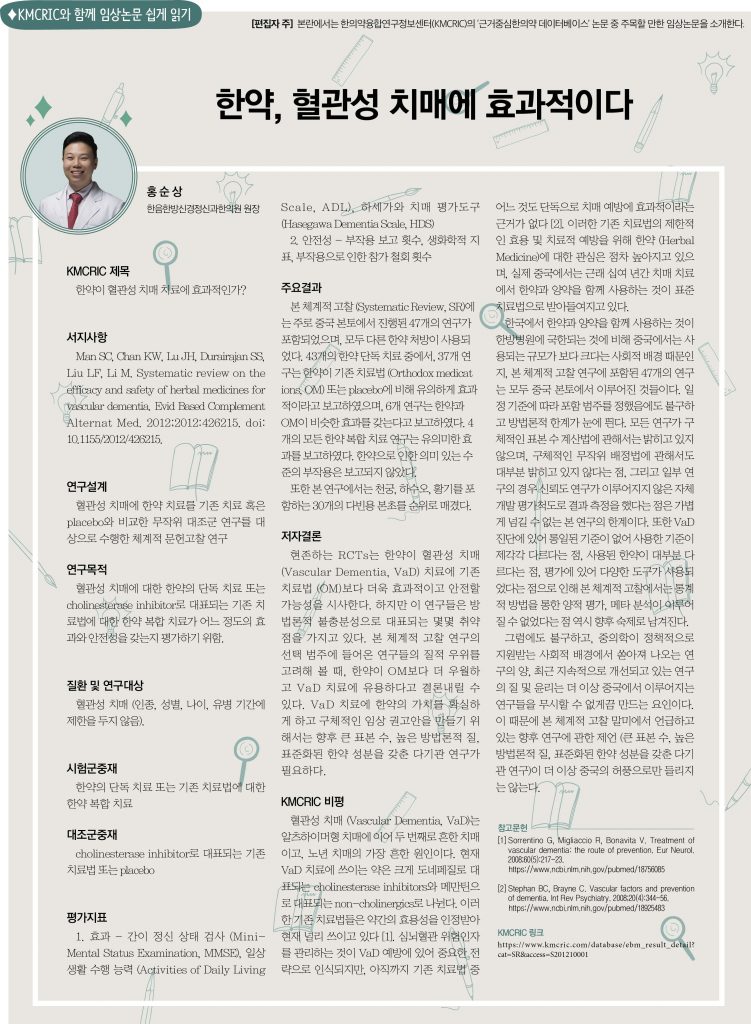 ♦KMCRIC와 함께 임상논문 쉽게 읽기
[편집자 주] 본란에서는 한의약융합연구정보센터(KMCRIC)의 '근거중심한의약 데이터베이스' 논문 중 주목할 만한 임상논문을 소개한다.
한약, 혈관성 치매에 효과적이다
홍 순 상
한음한방신경정신과한의원 원장
KMCRIC 제목
한약이 혈관성 치매 치료에 효과적인가?
서지사항
Man SC, Chan KW, Lu JH, Durairajan SS,
Liu LF, Li M. Systematic review on the
efficacy and safety of herbal medicines for
vascular dementia. Evid Based Complement
Alternat Med. 2012;2012:426215. doi:
10.1155/2012/426215.
연구설계
혈관성 치매에 한약 치료를 기존 치료 혹은
placebo와 비교한 무작위 대조군 연구를 대
상으로 수행한 체계적 문헌고찰 연구
연구목적
혈관성 치매에 대한 한약의 단독 치료 또는
cholinesterase inhibitor로 대표되는 기존 치
료법에 대한 한약 복합 치료가 어느 정도의 효
과와 안전성을 갖는지 평가하기 위함.
질환 및 연구대상
혈관성 치매 (인종, 성별, 나이, 유병 기간에
제한을 두지 않음).
시험군중재
한약의 단독 치료 또는 기존 치료법에 대한
한약 복합 치료
대조군중재
cholinesterase inhibitor로 대표되는 기존
치료법 또는 placebo
평가지표
1. 효과 – 간이 정신 상태 검사 (Mini-
Mental Status Examination, MMSE), 일상
생활 수행 능력 (Activities of Daily Living
Scale, ADL), 하세가와 치매 평가도구
(Hasegawa Dementia Scale, HDS)
2. 안전성 – 부작용 보고 횟수, 생화학적 지
표, 부작용으로 인한 참가 철회 횟수
주요결과
본 체계적 고찰 (Systematic Review, SR)에
는 주로 중국 본토에서 진행된 47개의 연구가
포함되었으며, 모두 다른 한약 처방이 사용되
었다. 43개의 한약 단독 치료 중에서, 37개 연
구는 한약이 기존 치료법 (Orthodox medicat
ions, OM) 또는 placebo에 비해 유의하게 효과
적이라고 보고하였으며, 6개 연구는 한약과
OM이 비슷한 효과를 갖는다고 보고하였다. 4
개의 모든 한약 복합 치료 연구는 유의미한 효
과를 보고하였다. 한약으로 인한 의미 있는 수
준의 부작용은 보고되지 않았다.
또한 본 연구에서는 천궁, 하수오, 황기를 포
함하는 30개의 다빈용 본초를 순위로 매겼다.
저자결론
현존하는 RCTs는 한약이 혈관성 치매
(Vascular Dementia, VaD) 치료에 기존
치료법 (OM)보다 더욱 효과적이고 안전할
가능성을 시사한다. 하지만 이 연구들은 방
법론적 불충분성으로 대표되는 몇몇 취약
점을 가지고 있다. 본 체계적 고찰 연구의
선택 범주에 들어온 연구들의 질적 우위를
고려해 볼 때, 한약이 OM보다 더 우월하
고 VaD 치료에 유용하다고 결론내릴 수
있다. VaD 치료에 한약의 가치를 확실하
게 하고 구체적인 임상 권고안을 만들기 위
해서는 향후 큰 표본 수, 높은 방법론적 질,
표준화된 한약 성분을 갖춘 다기관 연구가
필요하다.
KMCRIC 비평
혈관성 치매 (Vascular Dementia, VaD)는
알츠하이머형 치매에 이어 두 번째로 흔한 치매
이고, 노년 치매의 가장 흔한 원인이다. 현재
VaD 치료에 쓰이는 약은 크게 도네페질로 대
표되는 cholinesterase inhibitors와 메만틴으
로 대표되는 non-cholinergics로 나뉜다. 이러
한 기존 치료법들은 약간의 효용성을 인정받아
현재 널리 쓰이고 있다 [1]. 심뇌혈관 위험인자
를 관리하는 것이 VaD 예방에 있어 중요한 전
략으로 인식되지만, 아직까지 기존 치료법 중
어느 것도 단독으로 치매 예방에 효과적이라는
근거가 없다 [2]. 이러한 기존 치료법의 제한적
인 효용 및 치료적 예방을 위해 한약 (Herbal
Medicine)에 대한 관심은 점차 높아지고 있으
며, 실제 중국에서는 근래 십여 년간 치매 치료
에서 한약과 양약을 함께 사용하는 것이 표준
치료법으로 받아들여지고 있다.
한국에서 한약과 양약을 함께 사용하는 것이
한방병원에 국한되는 것에 비해 중국에서는 사
용되는 규모가 보다 크다는 사회적 배경 때문인
지, 본 체계적 고찰 연구에 포함된 47개의 연구
는 모두 중국 본토에서 이루어진 것들이다. 일
정 기준에 따라 포함 범주를 정했음에도 불구하
고 방법론적 한계가 눈에 띈다. 모든 연구가 구
체적인 표본 수 계산법에 관해서는 밝히고 있지
않으며, 구체적인 무작위 배정법에 관해서도
대부분 밝히고 있지 않다는 점, 그리고 일부 연
구의 경우 신뢰도 연구가 이루어지지 않은 자체
개발 평가척도로 결과 측정을 했다는 점은 가볍
게 넘길 수 없는 본 연구의 한계이다. 또한 VaD
진단에 있어 통일된 기준이 없어 사용한 기준이
제각각 다르다는 점, 사용된 한약이 대부분 다
르다는 점, 평가에 있어 다양한 도구가 사용되
었다는 점으로 인해 본 체계적 고찰에서는 통계
적 방법을 통한 양적 평가, 메타 분석이 이루어
질 수 없었다는 점 역시 향후 숙제로 남겨진다.
그럼에도 불구하고, 중의학이 정책적으로
지원받는 사회적 배경에서 쏟아져 나오는 연
구의 양, 최근 지속적으로 개선되고 있는 연구
의 질 및 윤리는 더 이상 중국에서 이루어지는
연구들을 무시할 수 없게끔 만드는 요인이다.
이 때문에 본 체계적 고찰 말미에서 언급하고
있는 향후 연구에 관한 제언 (큰 표본 수, 높은
방법론적 질, 표준화된 한약 성분을 갖춘 다기
관 연구)이 더 이상 중국의 허풍으로만 들리지
는 않는다.
참고문헌
[1] Sorrentino G, Migliaccio R, Bonavita V. Treatment of
vascular dementia: the route of prevention. Eur Neurol.
2008;60(5):217-23.
https://www.ncbi.nlm.nih.gov/pubmed/18756085
[2] Stephan BC, Brayne C. Vascular factors and prevention
of dementia. Int Rev Psychiatry. 2008;20(4):344-56.
https://www.ncbi.nlm.nih.gov/pubmed/18925483
KMCRIC 링크
https://www.kmcric.com/database/ebm_result_detail?
cat=SR&access=S201210001